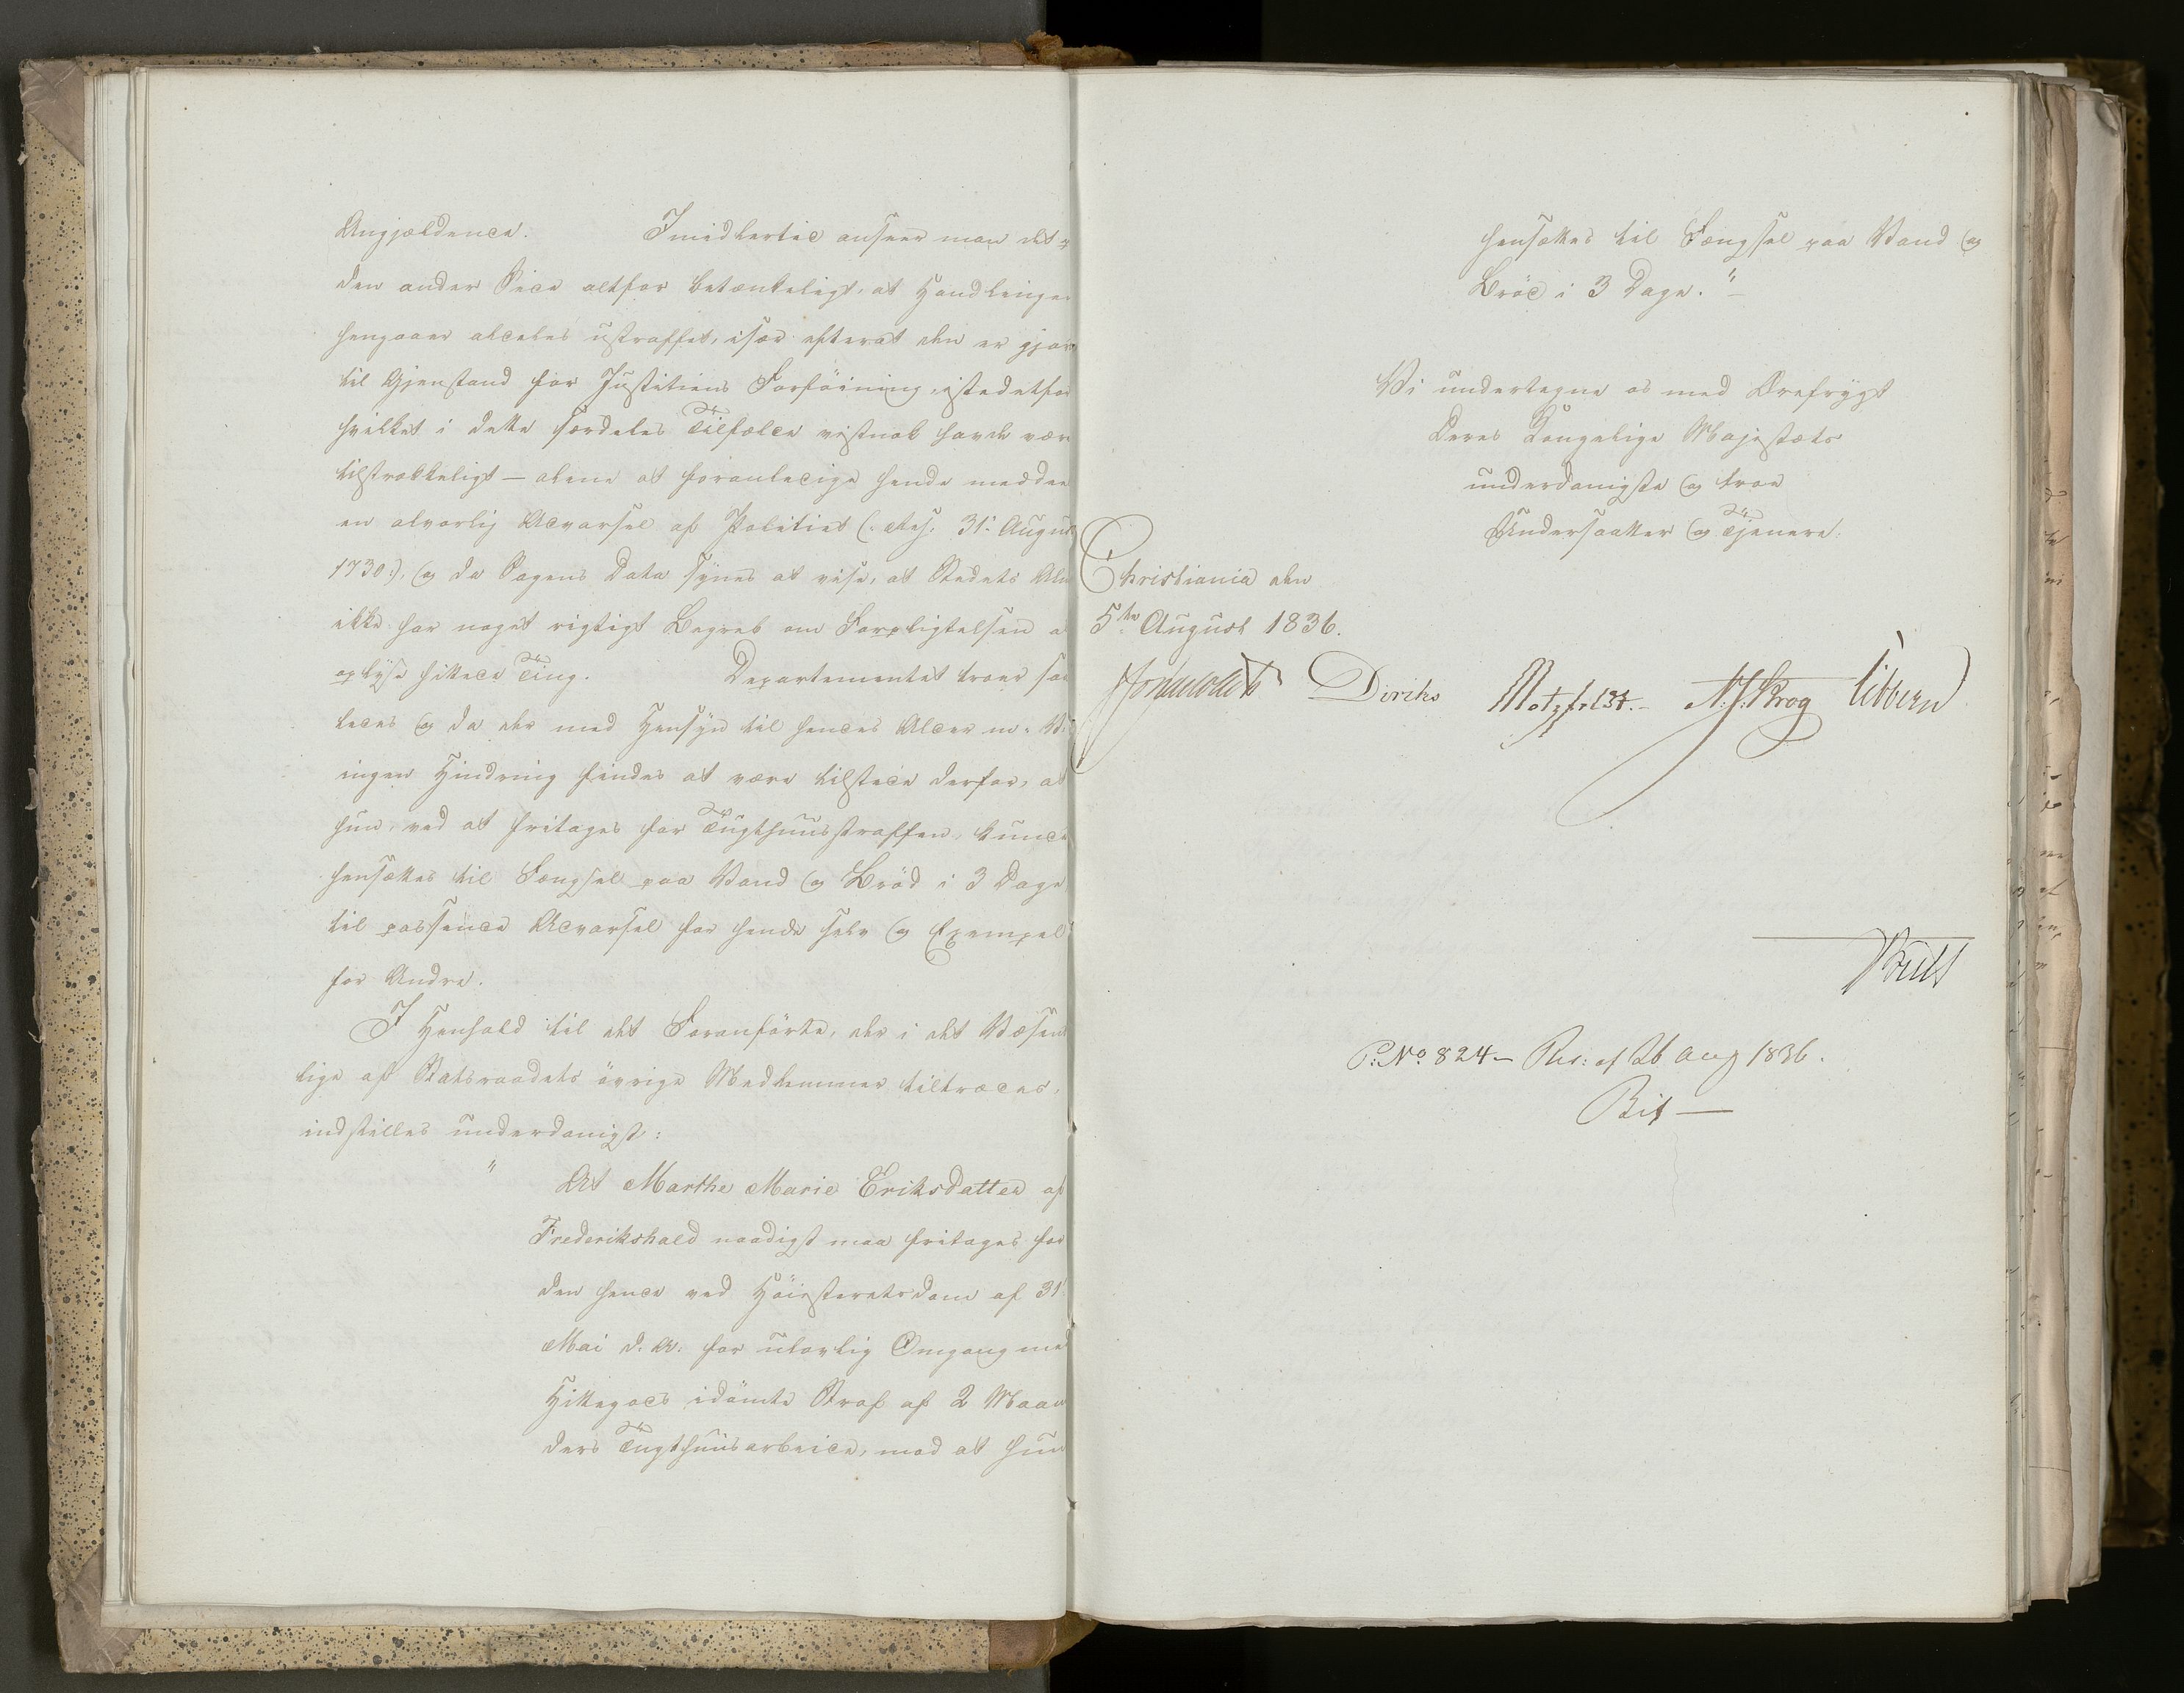 Angjældende. Imidlertid anseer man det p
den anden Side altfor betænkeligt, at Handlingen
hengaaer aldeles ustraffet, især efterat den er gjor
til Gjenstand for Justitiens Forføining, istedetfor
hvilket i dette særdeles Tilfælde vistnok havde vær
tilstrækkeligt — alene at foranledige hende meddee
en alvorlig Advarsel af Politiet (: Res: 31. August
1736:), og da Sagens Data synes at vise, at Stedets Alm
ikke har noget rigtigt Begreb om Forpligtelsen a
oplyse hittede Ting. Departementet troer saa
ledes og da der med Hensyn til hendes Alder m. V.
ingen Hindring findes at være tilstede derfor, at
hun, ved at fritages for Tugthuusstraffen, kunde
hensættes til Fængsel paa Vand og Brød i 3 Dage
til passende Advarsel for hende selv og Exempel
for Andre.
I Henhold til det Foranførte, der i det Væsent
lige af Statsraadets øvrige Medlemmer tiltrædes,
indstilles underdanigst:
" At Marthe Marie Eriksdatter af
Frederikshald naadigst maa fritages for
den hende ved Høiesteretsdom af 31
Mai d. A. for ulovlig Omgang med
Hittegods idømte Straf af 2 Maan
ders Tugthuusarbeide, mod at hun
hensættes til Fængsel paa Vand og
Brød i 3 Dage."—
Vi undertegne os med Ærefrygt
Deres Kongelige Majestæts
underdanigste og troe
Undersaatter og Tjenere.
Christiania den
5te August 1836.
Diriks Motzfeldt.— N. J. Krog Sibbern
P: No 824— Res: af 26 Aug 1836.